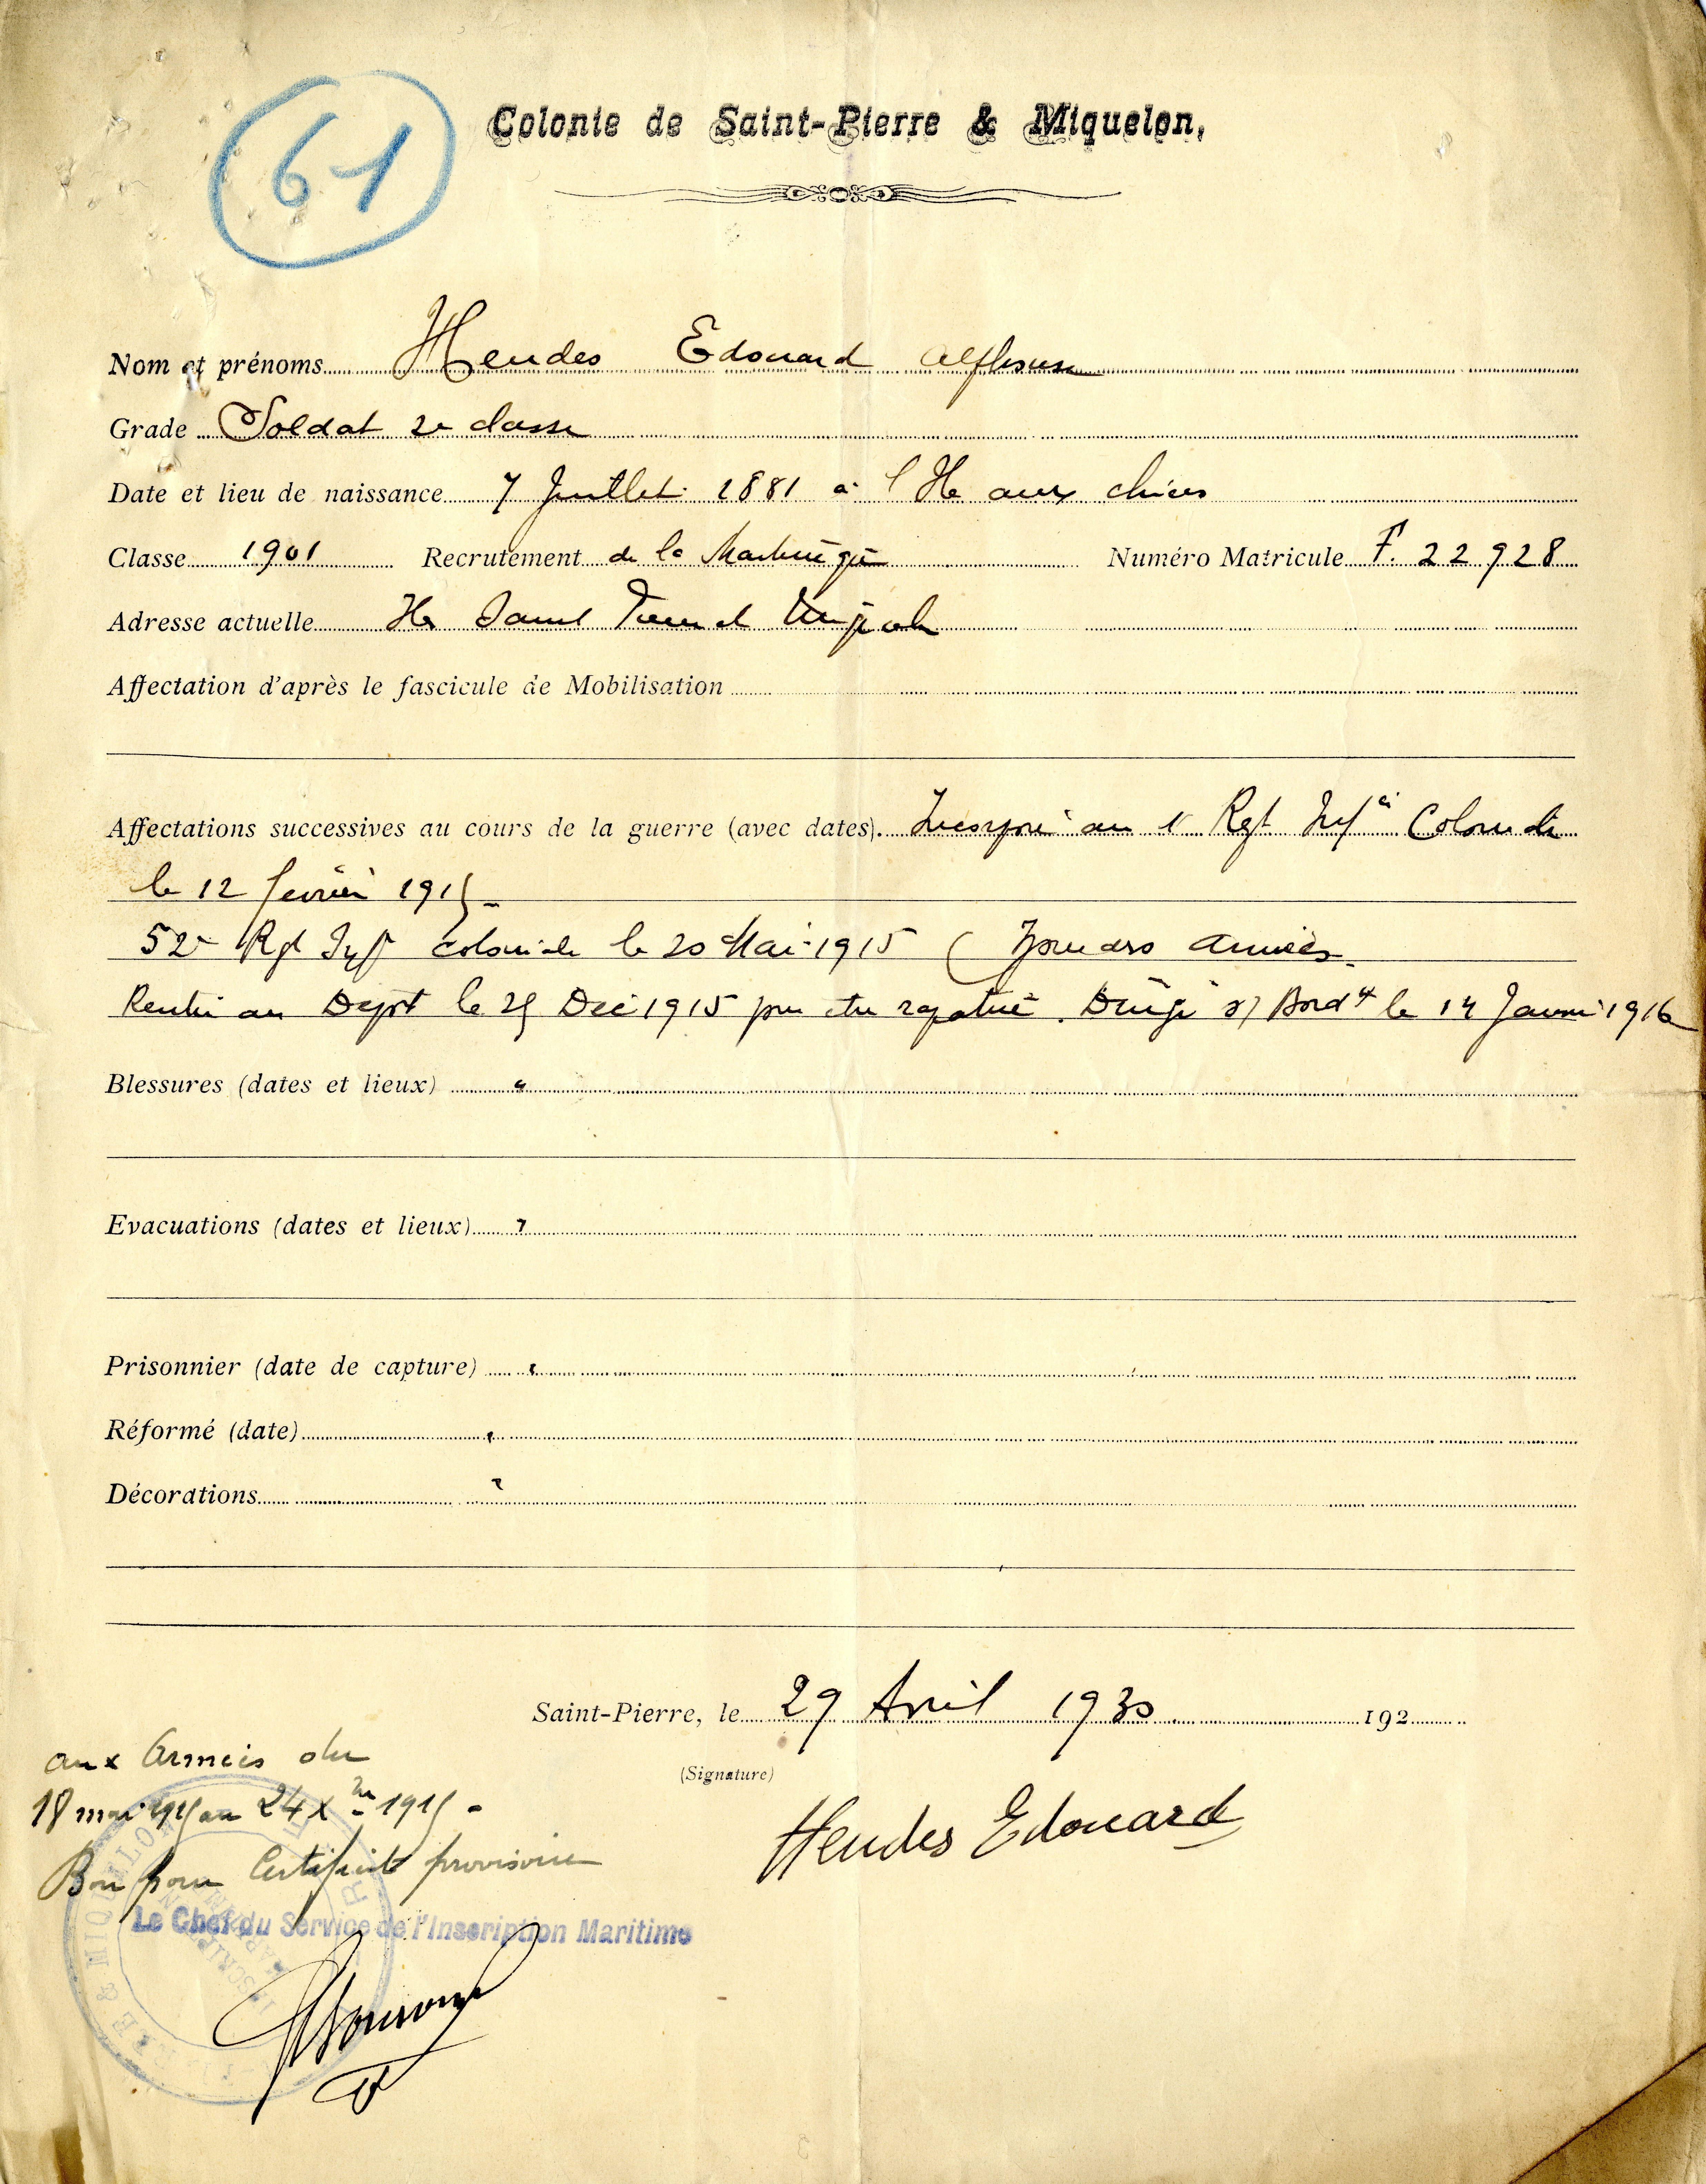 61
Colonie de Saint-Pierre & Miquelon,
Nom et prénoms Hendes Edouard Alphonse
Grade Soldat 2e classe
Date et lieu de naissance 7 Juillet 1881 à l'Ile aux chiens
Classe 1901 Recrutement de la Martinique Numéro Matricule F. 22928
Adresse actuelle Ile Saint Pierre et Miquelon
Affectation d'après le fascicule de Mobilisation
Affectations successives au cours de la guerre (avec dates). Incorporé au 1r Rgt Infie Coloniale
le 12 février 1915
52e Rgt Infie coloniale le 20 Mai 1915 ( armées
Rentré au Depot le 25 Dec 1915 pour etre rapatrié. Dirigé s/ Bordx le 14 Janvier 1916
Blessures (dates et lieux) "
Evacuations (dates et lieux) "
Prisonnier (date de capture) "
Réformé (date) "
Décorations "
Saint-Pierre, le 29 Avril 1930 192
(Signature)
Hendes Edouard
aux Armées du
18 mai 1915 au 24 Xbre 1915 -
Bon pour Certificat provisoire
Le Chef du Service de l'Inscription Maritime